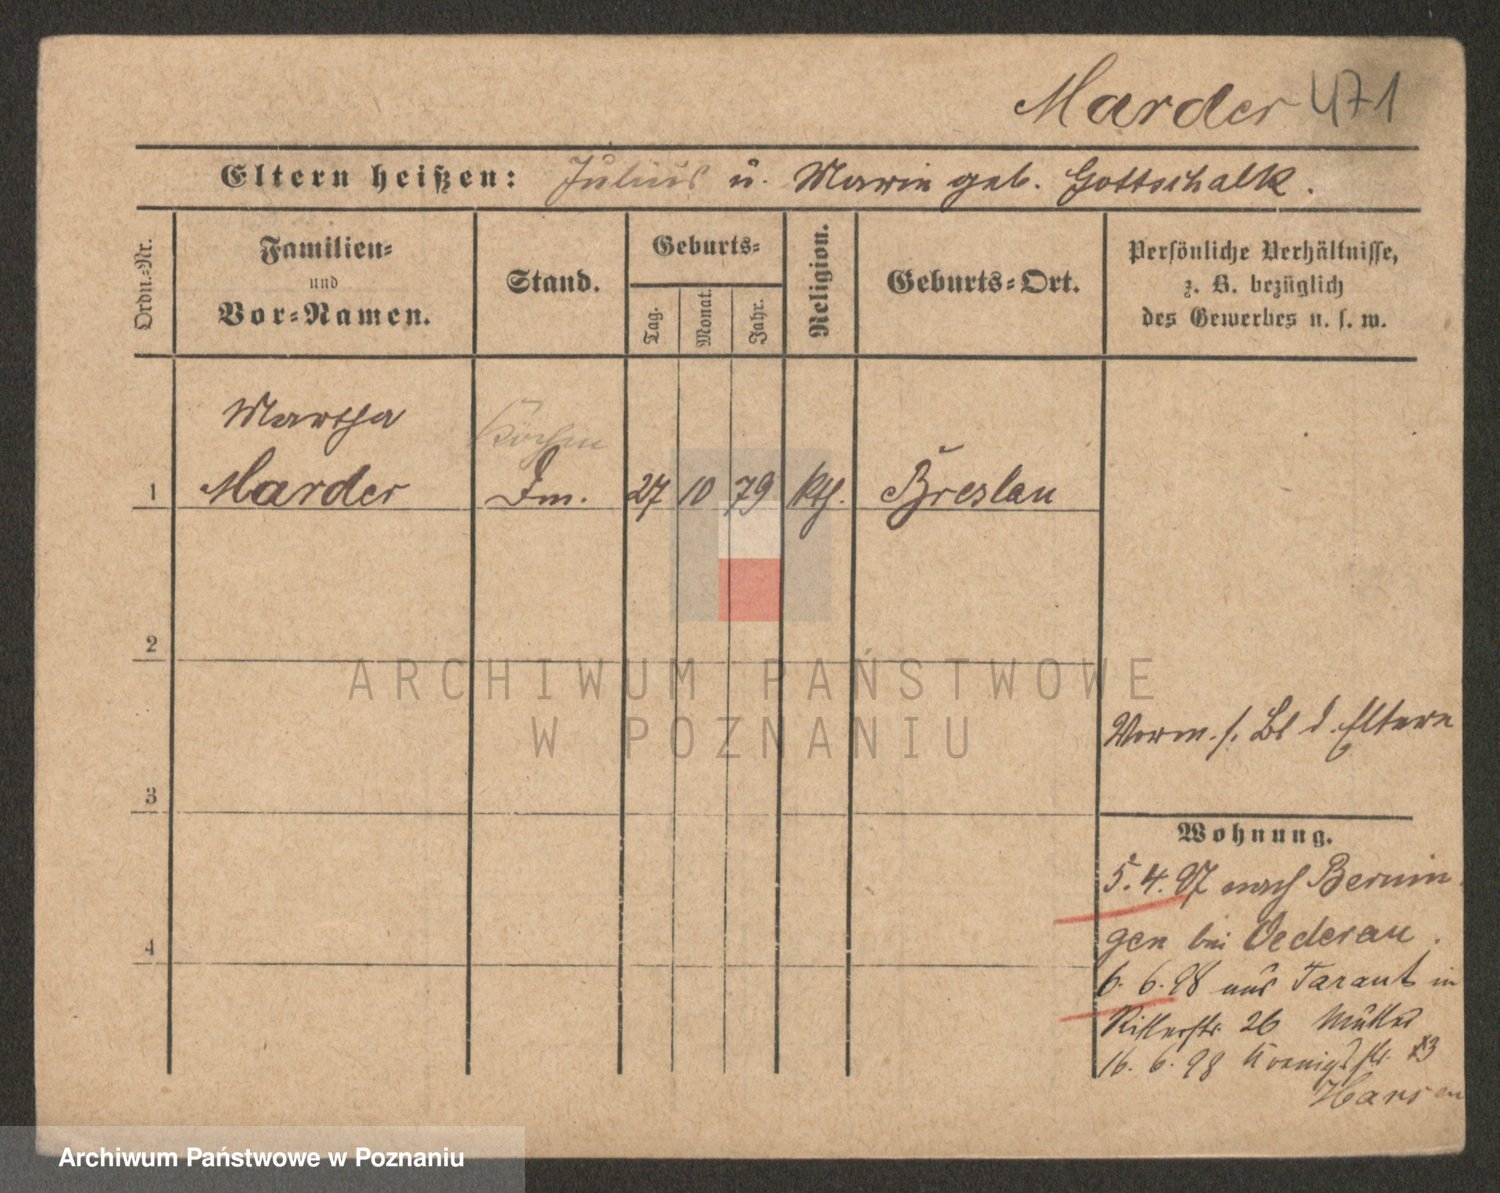 Marder 471
Eltern heißen: Julius u. Marie geb. Gottschalk.
Ordn.-Nr.
Familien-
und
Vor-Namen.
Stand.
Geburts-
Tag.
Monat.
Jahr.
Religion.
Geburts-Ort.
Persönliche Verhältnisse,
z. B. bezüglich
des Gewerbes u. s. w.
Martha
Köchin
1 Marder Dm. 27 10 79 kth. Breslau
2
Vorm. s. Bl d. Eltern
3
Wohnung.
5. 4. 97 nach Bernin
gen bei Oederau.
4
6. 6. 98 aus Tarant in
Ritterstr. 26 Mutter
16. 6. 98 Koenigsstr.
Hansen
ARCHIWUM PAŃSTWOWE
W POZNANIU
Archiwum Państwowe w Poznaniu